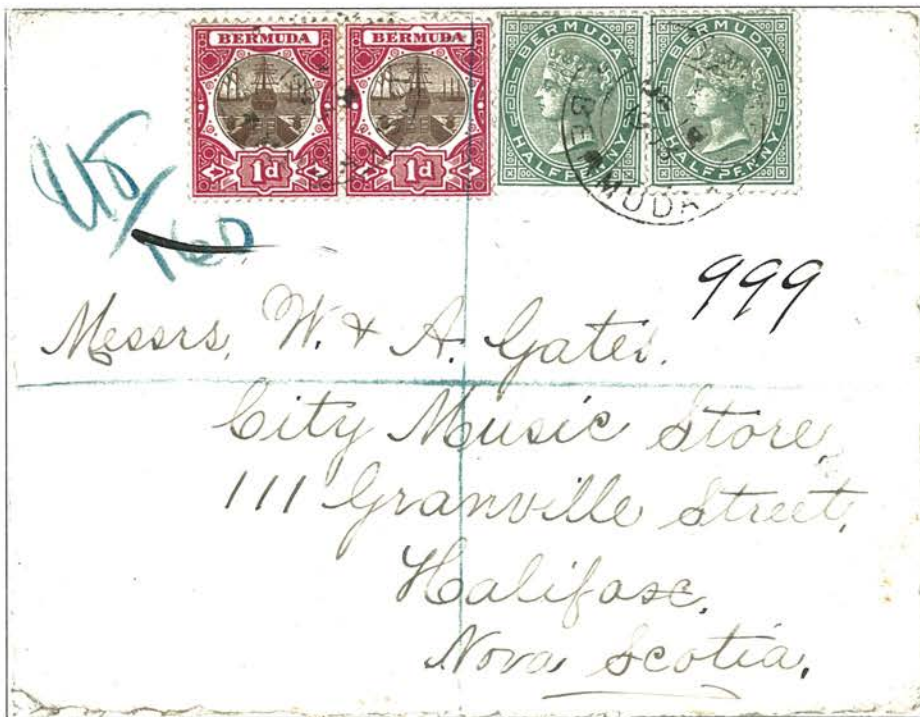 BERMUDA BERMUDA BERMUDA BERMUDA
1d 1d HALFPENNY HALFPENNY
BERMUDA
160
999
Messrs. W. & A. Gates.
City Music Store,
111 Granville Street,
Halifax,
Nova Scotia.